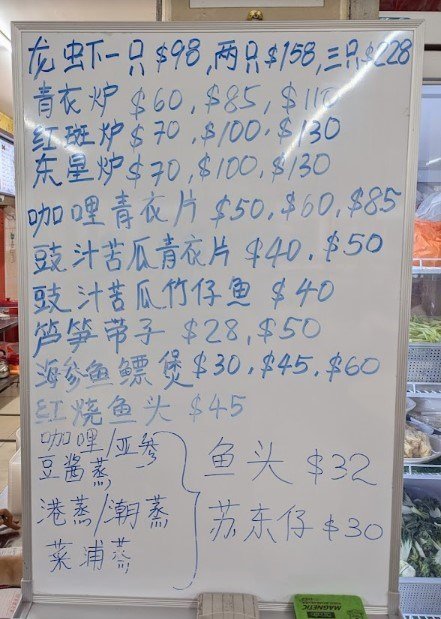 龙虫下一只$98,两只$158,三只$228
青衣炉 $60,$85,$110
红斑炉 $70,$100.$130
东星炉 $70,$100,$130
咖哩青衣片 $50,$60,$85
豉汁苦瓜青衣片 $40.$50
豉汁苦瓜竹仔鱼 $40
芦笋带子 $28,$50
海参鱼鳔煲 $30,$45,$60
红烧鱼头 $45
咖哩/亚参
豆酱蒸
港蒸/潮蒸
菜浦蒸
鱼头 $32
苏东仔 $30
MAGNETIC